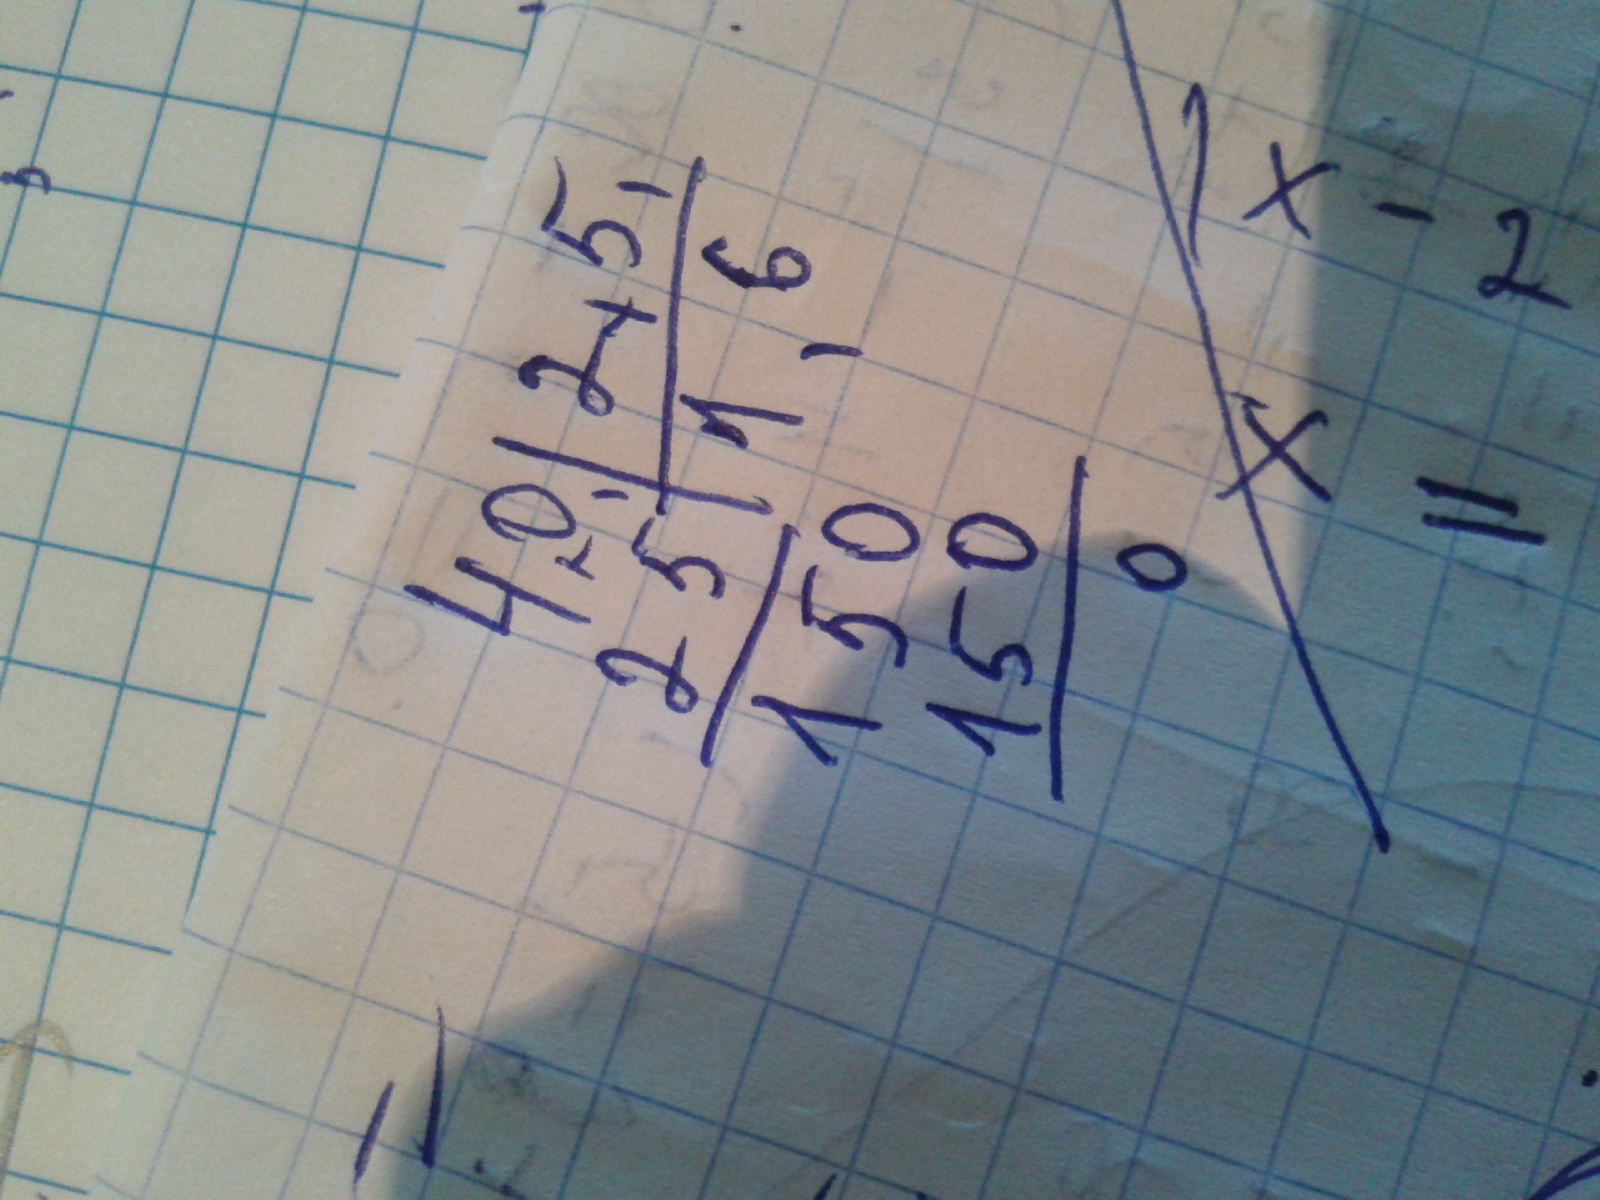 40, | 2,5
25 | 16
150
150
0
x - 2
x =